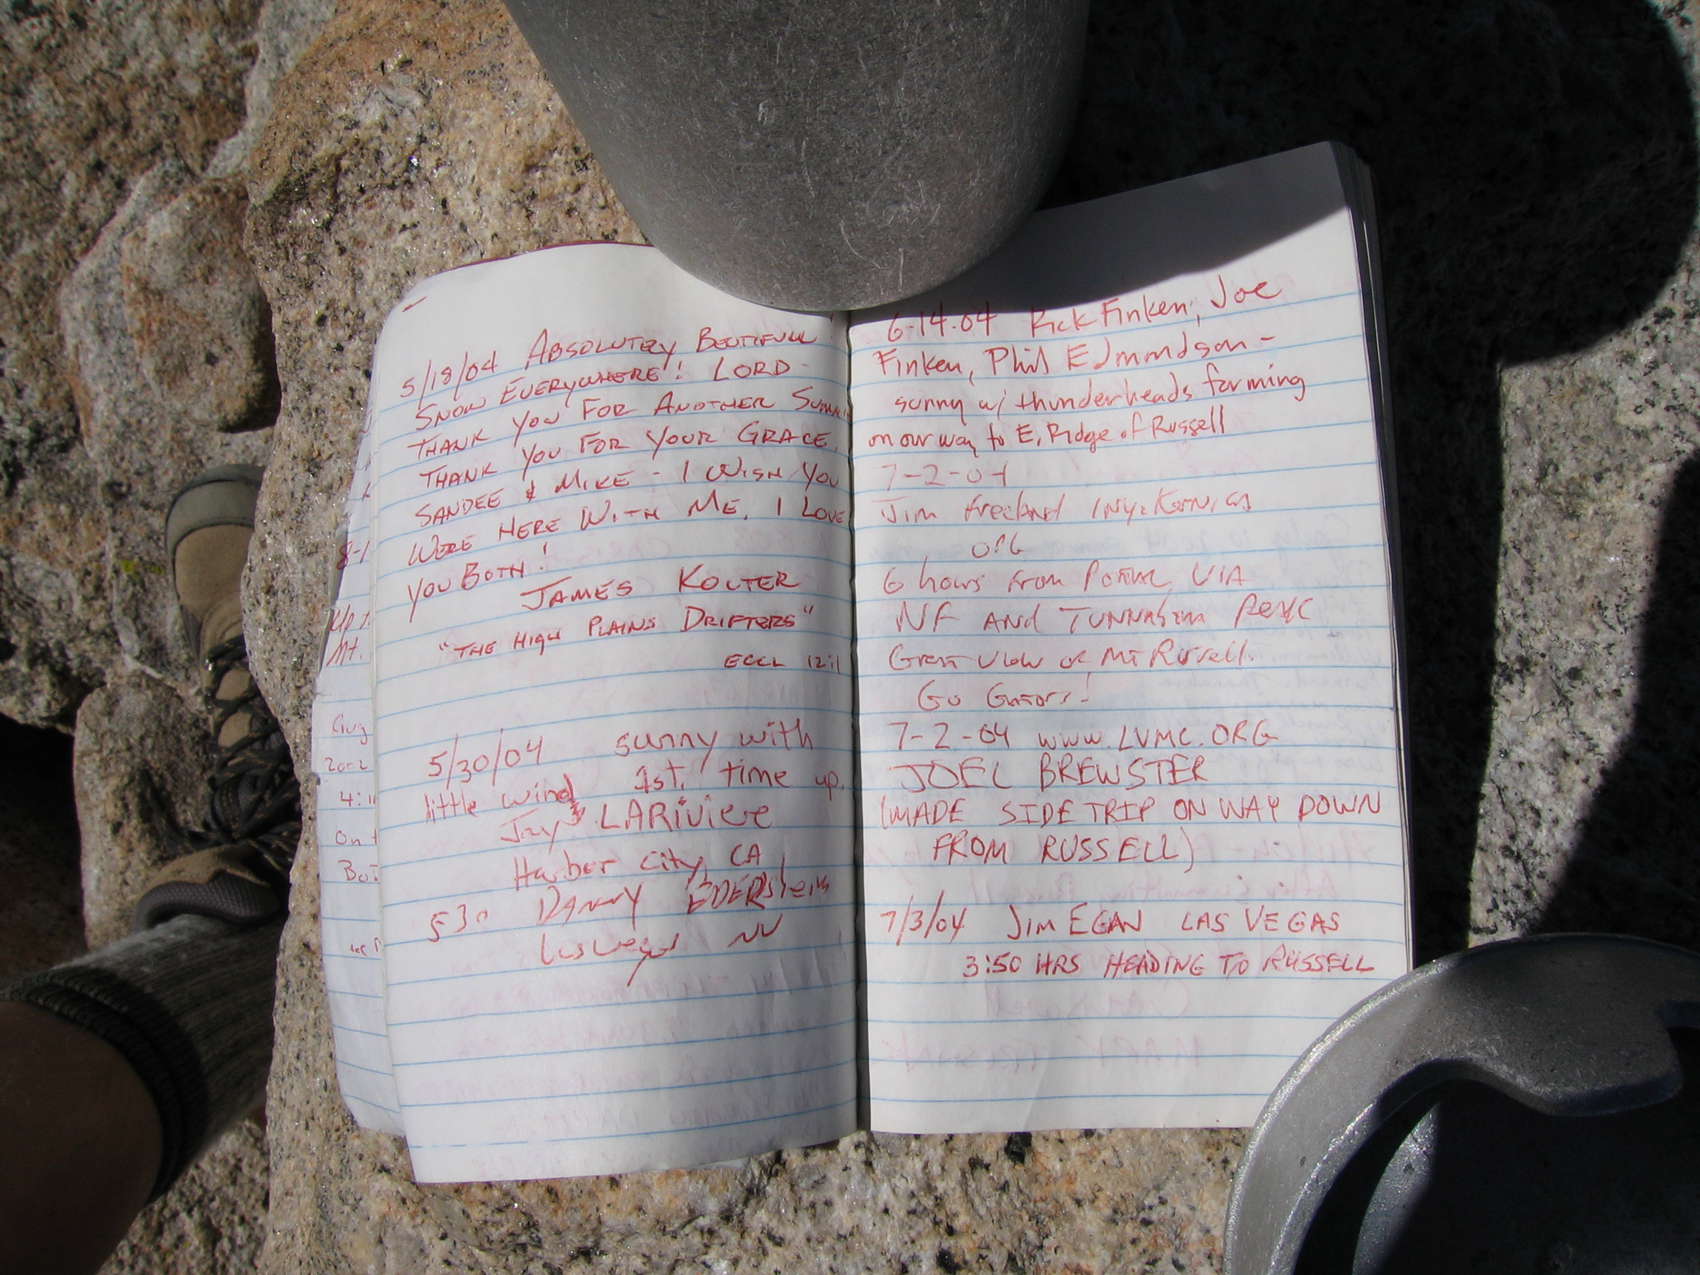 5/18/04 ABSOLUTELY BEUTIFULL
SNOW EVERYWHERE! LORD -
THANK YOU FOR ANOTHER
THANK YOU FOR YOUR GRACE,
SANDEE & MIKE - I WISH YOU
WERE HERE WITH ME, I LOVE
YOU BOTH!
JAMES KOLTER
"THE HIGH PLAINS DRIFTERS"
ECCL 12:1
5/30/04 sunny with
little wind 1st. time up.
Jay LARiviere
Harbor City, CA
530 Danny
Las Vegas NV
6-14-04 Rick Finken, Joe
Finken, Phil Edmondson -
sunny w/ thunderheads forming
on our way to E. Ridge of Russell
7-2-04
Jim
ORG
6 hours from Portal VIA
NF AND
Great View of Mt Russell.
Go Gators!
7-2-04 www.LVMC.ORG
JOEL BREWSTER
(MADE SIDE TRIP ON WAY DOWN
FROM RUSSELL)
7/3/04 JIM EGAN LAS VEGAS
3:50 HRS HEADING TO RUSSELL
8-1
Mt.
Aug
2002
4:11
On